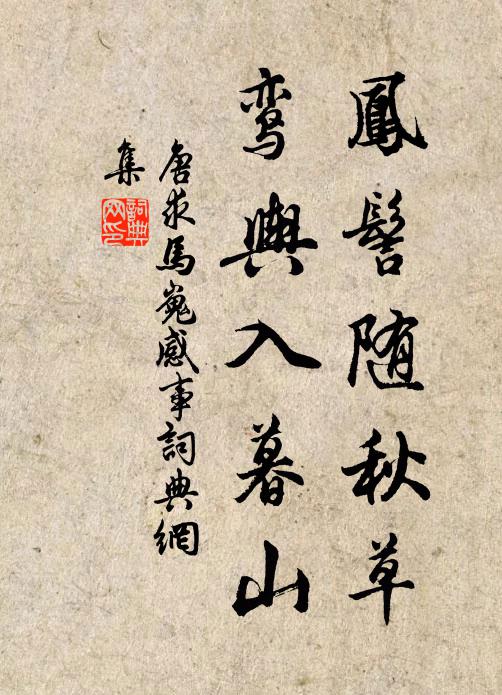 鳳髻随秋草
鸾輿入暮山
唐求馬嵬感事詞典網
集
詞典網印